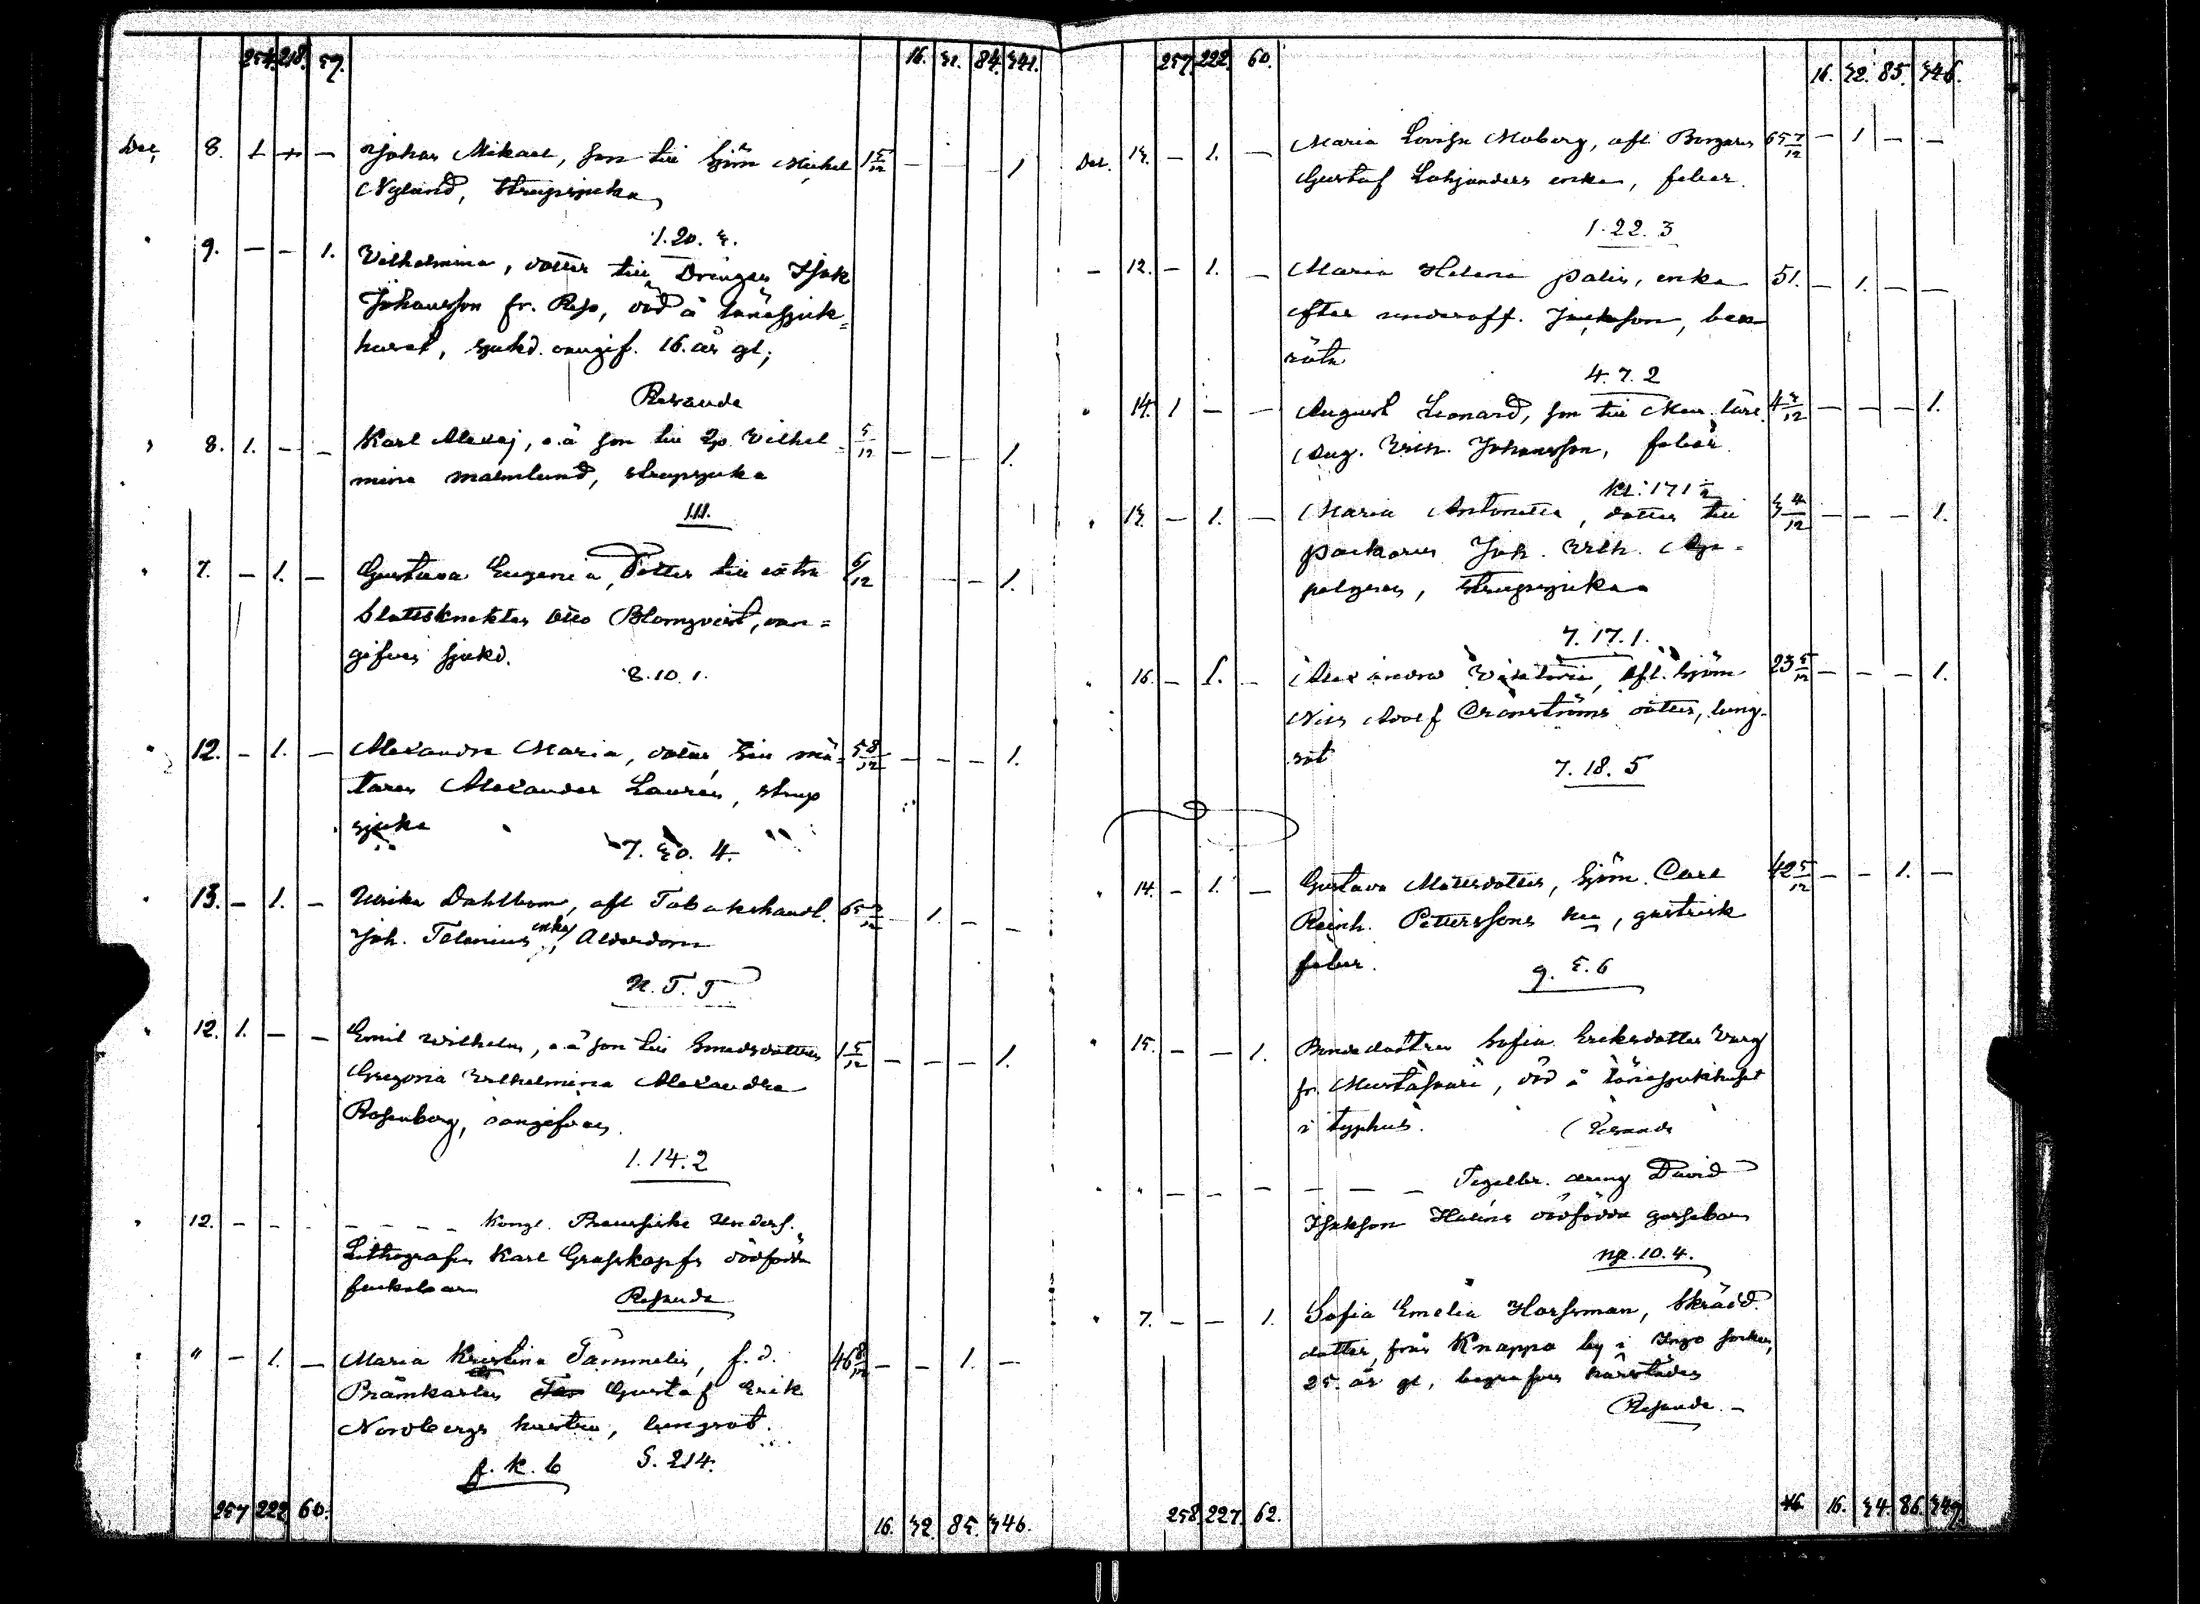 254. 218. 59. 16. 31. 84. 341.
Dec. 8. 1. + — Johan Mikael, son till Sjöm Mickel 1 5/12 — 1
Nylund, strupsjuka
1.20.3.
" 9. — — 1. Vilhelmina, dotter till Drängen Isak
Johansson fr. Reso, död å länesjuk=
huset, sjukd. oangif. 16. år gl;
Resande
" 8. 1. — — Karl Alexej, o.ä son till Vilhel= 5/12 — — — 1.
mina Malmlund, strupsjuka
111.
" 7. — 1. — Gustava Eugenia, Dotter till extra 6/12 — 1.
Slottsknekten Otto Blomqvist, oan=
gifven sjukd.
8.10.1.
" 12. — 1. — Alexandra Maria, dotter till må= 5 8/12 — — — 1.
laren Alexander Laurén, strup
sjuka
7. 30. 4.
" 13. — 1. — Ulrika Dahlbom, afl Tobakshandl. 65 /12 1. — —
Joh. Telenius enka, Ålderdom
N. T. T
" 12. 1. — — Emil Wilhelm, o.ä son till Smedsdottren 1 5/12 — — — 1.
Gregoria Wilhelmina Alexandra
Rosenberg, oangifven.
1.14.2
" 12. — — — — — — Kongl. Preussiske Unders.
Lithografen Karl Grasskopfs dödfödda
flickebarn
Resande
" " — 1. — Maria Kristina Tammelin, f.d. 46 8/12 — — 1. —
Pråmkarlen Gustaf Erik
Nordbergs hustru, lungsot.
f. k. b S. 214.
257 222 60. 16. 32. 85. 346.
257. 222. 60. 16. 32. 85. 346.
Dec. 13. — 1. — Maria Lovisa Moberg, afl. Borgaren 65 7/12 — 1 — —
Gustaf Lohjanders enka, feber.
1.22.3
— 12. — 1. — Maria Helena Palin, enka 51. — 1. — —
efter underoff. Jackson, ben
röta
4.7.2
" 14. 1 — — August Leonard, son till 4 3/12 — — — 1.
Aug. Vilh. Johansson, feber.
Kl. 171 1/2
" 13. — 1. — Maria Antonetta, dotter till 3 4/12 — — — 1.
packaren Joh. Vilh. Ap=
pelgren, strupsjuka
7.17.1.
" 16. — 1. — Alexandra Viktoria, afl. Sjöm 23 5/12 — — — 1.
Nils Adolf Cranströms dotter, lung-
sot
7.18.5
" 14. — 1. — Gustava Matsdotter, Sjöm. Carl 42 5/12 — — 1. —
Reinh. Petterssons hu, gastrisk
feber.
9. 5. 6
" 15. — — 1. Bondedottren Sofia Eriksdotter Varg
fr. Mustasaari, död å länesjukhuset
i typhus. Resande
" " — — — — — — Tegelbr. dreng David
Isakson Haléns dödfödda gossebarn
np. 10. 4.
" 7. — — 1. Sofia Emelia Horsman, Skrädd.
dotter, från Knappa by i Ingo socken,
25. år gl, begrafven härstädes
Resande. —
258. 227. 62. 16. 34. 86. 349.